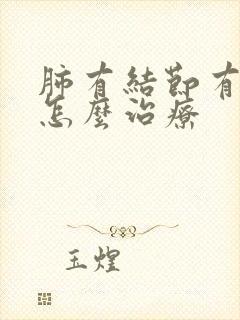 肺有結節有
怎麼治療
玉煌